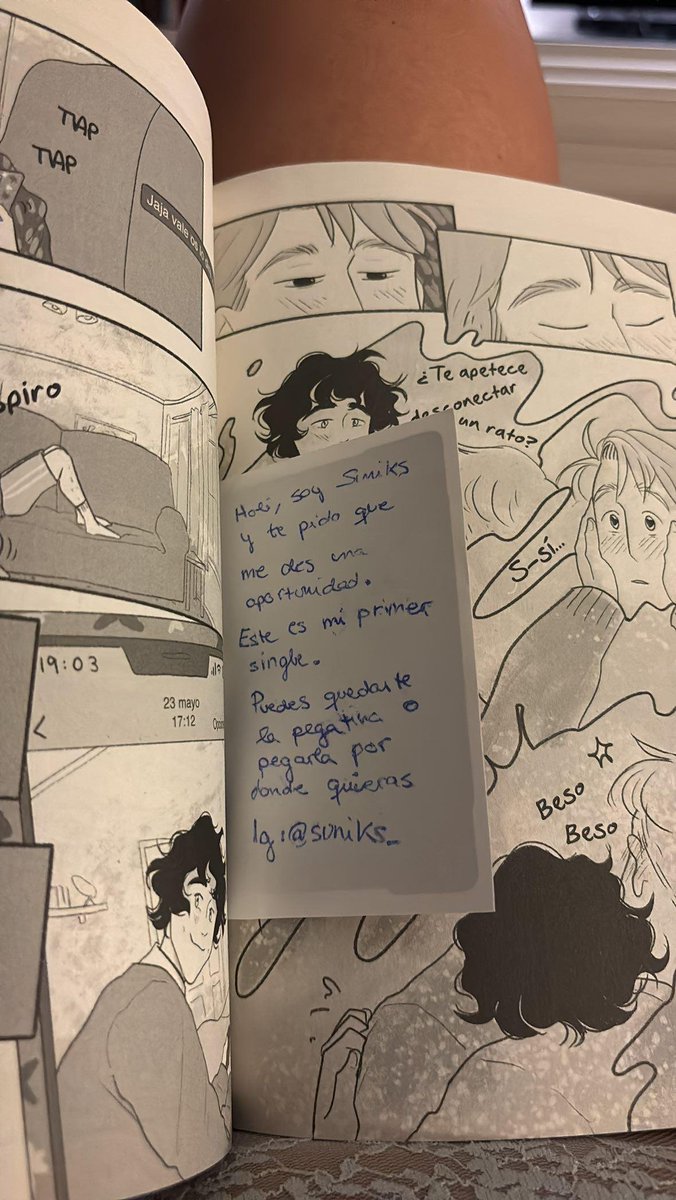 TVAP
TVAP
Jaja vale os
spiro
19:03
23 mayo
17:12
¿Te apetece
desconectar
un rato?
S-sí...
Holi, soy Siniks
y te pido que
me des una
oportunidad.
Este es mi primer
single.
Puedes quedarte
la pegatina o
pegarla por
donde quieras
Ig:@siniks_
Beso
Beso